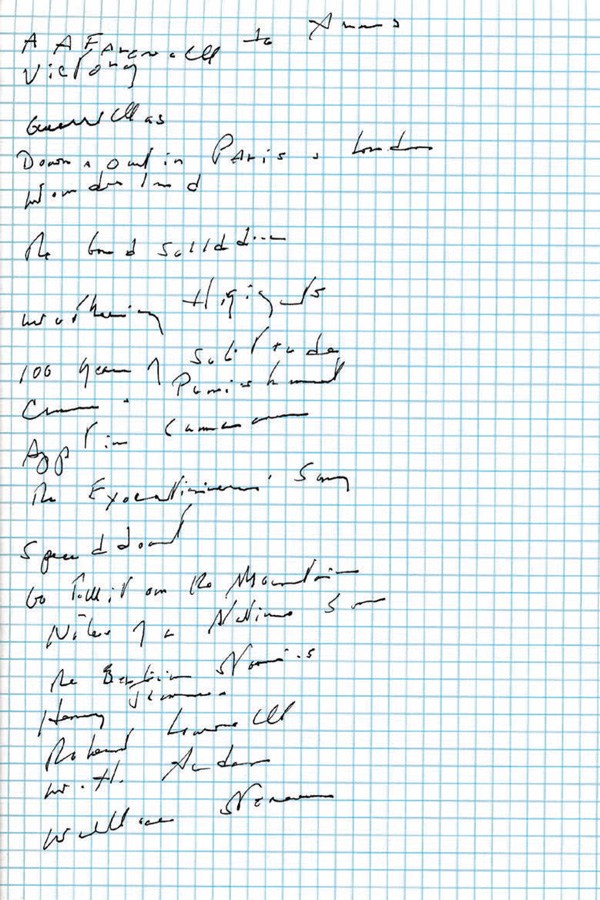 A A Farewell to Arms
Victory
Guerrillas
Down & Out in Paris & London
Wonderland
The Good Soldier
Wuthering Heights
100 Years of Solitude
Crime & Punishment
App in Camera
The Executioner's Song
Speedboat
Go Tell it on the Mountain
Notes of a Native Son
The Stories
Henry James
Robert Lowell
W. H. Auden
Wallace Stevens